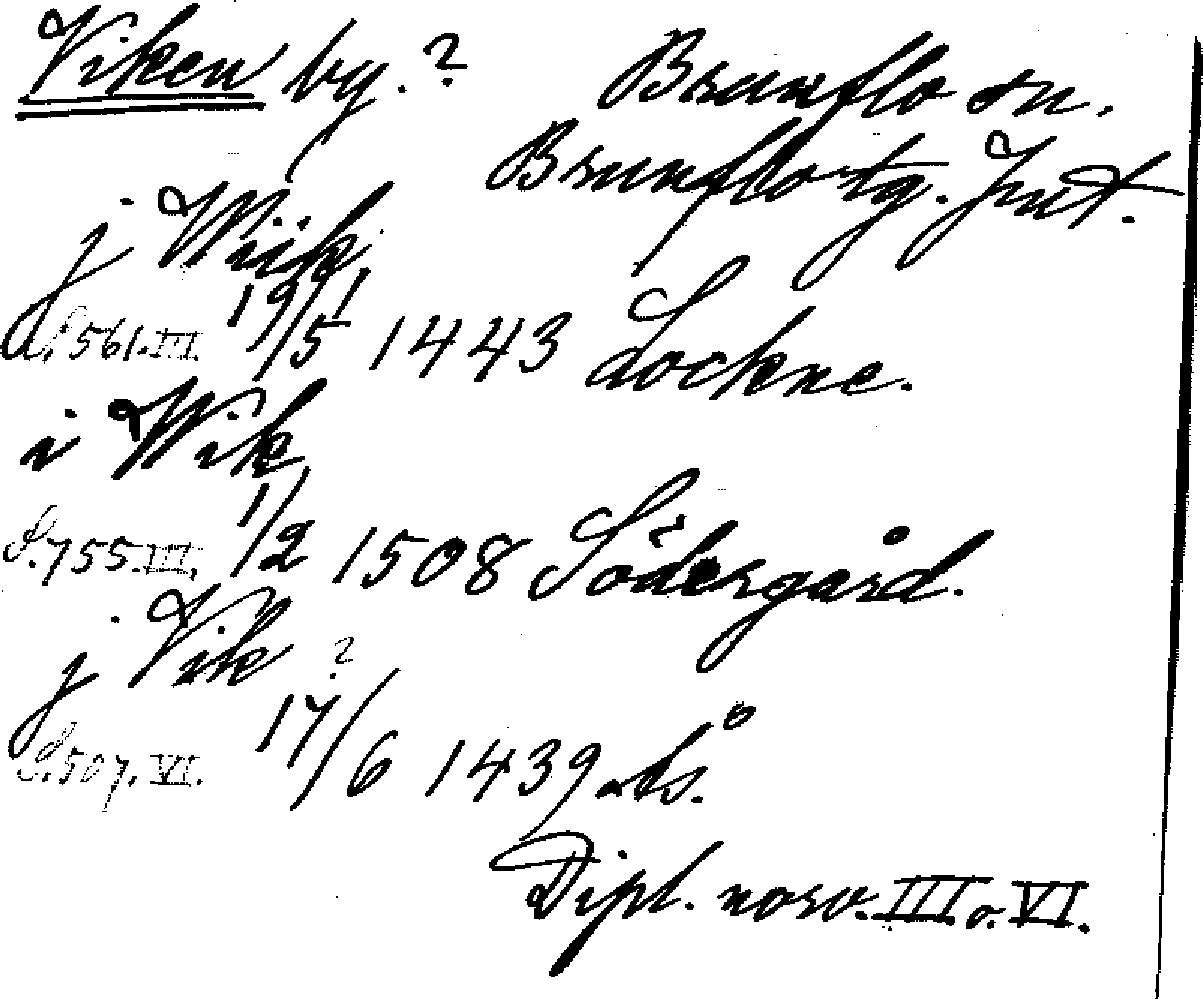 Viken by.? Brunflo sn.
Brunflo tg. Jmt.
j Wiik,
S. 561. III. 19/5 1443 Lockne.
i Wik,
S. 755. III. 1/2 1508 Södergård.
j Vik ?
S. 507. VI. 17/6 1439 Ås.
Dipl. norv. III o. VI.